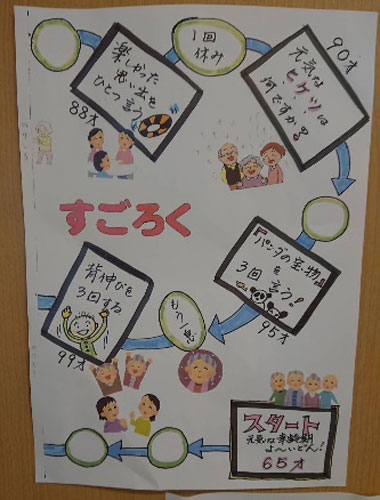 楽しかった
思い出を
ひとつ言う。
88才
1回
休み
90才
元気な
ヒケツは
何ですか。
すごろく
『パンダの宝物』
を
3回 言う!
95才
もう一息
背伸びを
3回する
99才
スタート
元気な高齢期
よ〜いどん!
65才